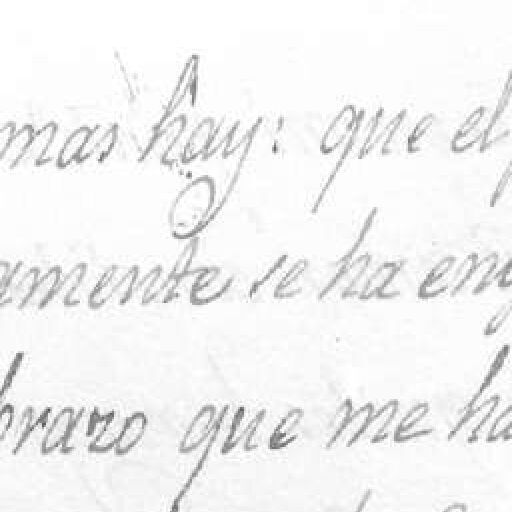 mas hay: que el
amente se ha eng
brazo que me ha